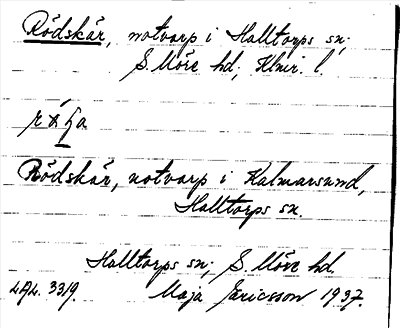 Rödskär, notvarp i Halltorps sn;
S. Möre hd; Klmr. l.
Rödskär, notvarp i Kalmarsund,
Halltorps sn.
Halltorps sn; S. Möre hd.
LAL. 3319. Maja Ericsson 1937.